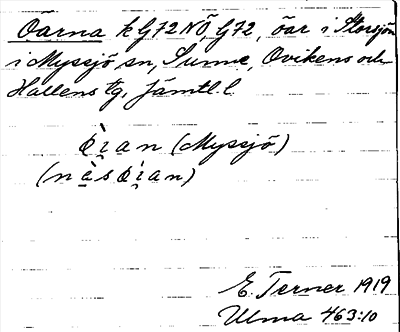 Öarna k G72NÖ, G72, öar i Storsjön
i Myssjö sn, Sunne, Ovikens och
Hallens tg, Jämtl. l.
ö̀ı̣an (Myssjö)
(nà̱sö̀ı̣an)
E. Terner 1919
Ulma 463:10